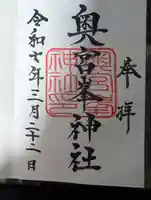 奉拝
奥宮峯神社
令和七年三月二十二日